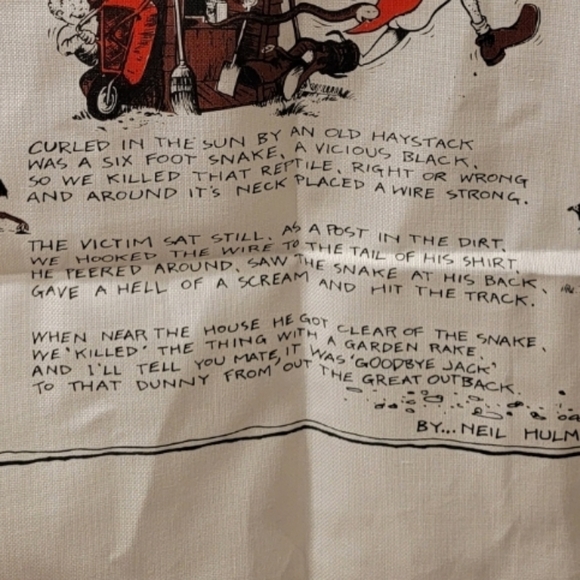 CURLED IN THE SUN BY AN OLD HAYSTACK
WAS A SIX FOOT SNAKE, A VICIOUS BLACK.
SO WE KILLED THAT REPTILE, RIGHT OR WRONG
AND AROUND IT'S NECK PLACED A WIRE STRONG.
THE VICTIM SAT STILL. AS A POST IN THE DIRT.
WE HOOKED THE WIRE TO THE TAIL OF HIS SHIRT.
HE PEERED AROUND. SAW THE SNAKE AT HIS BACK.
GAVE A HELL OF A SCREAM AND HIT THE TRACK.
WHEN NEAR THE HOUSE HE GOT CLEAR OF THE SNAKE.
WE 'KILLED' THE THING WITH A GARDEN RAKE.
AND I'LL TELL YOU MATE, IT WAS 'GOODBYE JACK'
TO THAT DUNNY FROM 'OUT THE GREAT OUTBACK.
BY... NEIL HULM